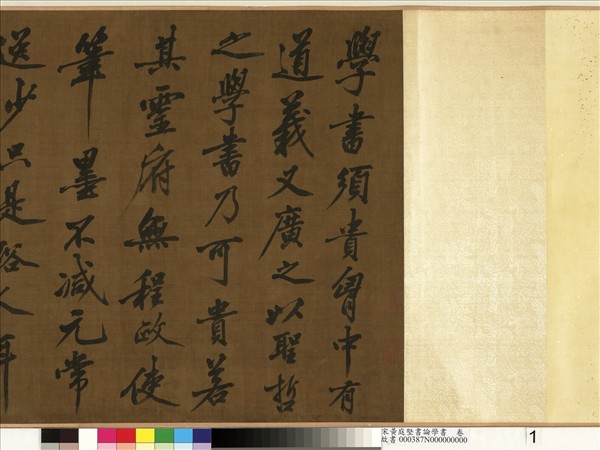 學書須貴胷中有
道義又廣之以聖哲
之學書乃可貴若
其靈府無程政使
筆墨不減元常
逸少只是俗人耳
宋黃庭堅書論學書　卷
故書 000387N000000000
1